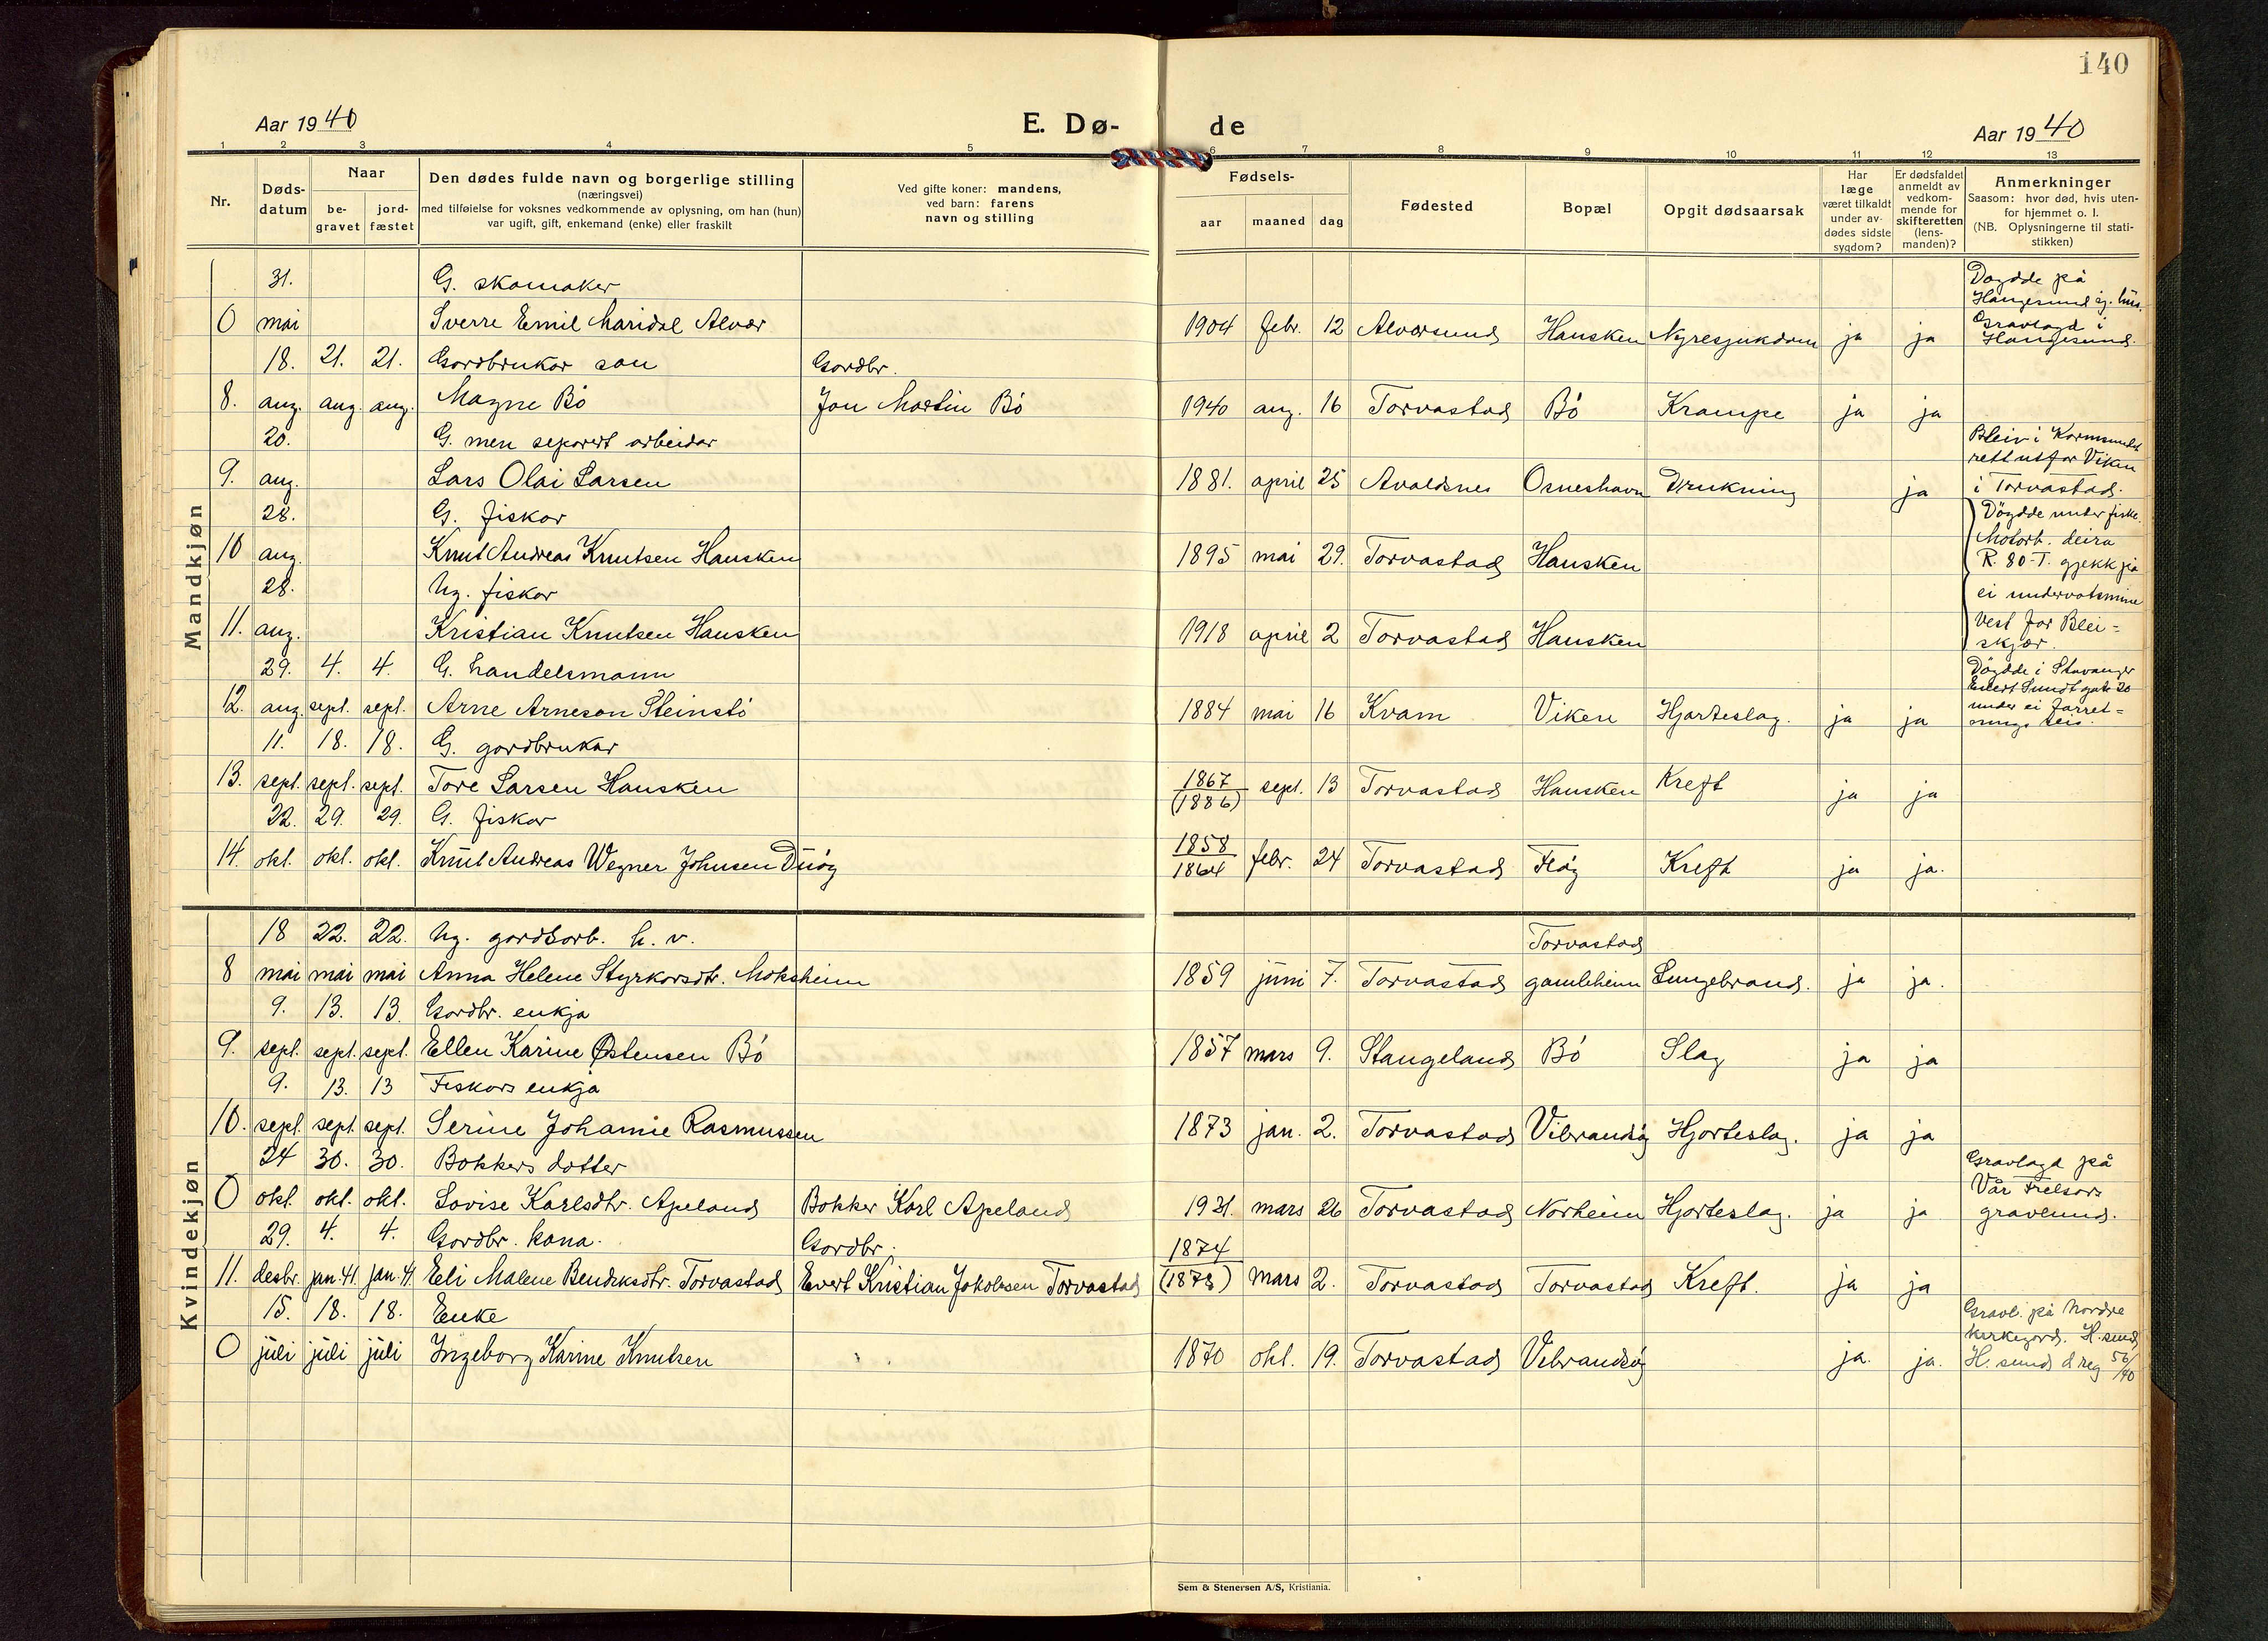 140
Aar 1940
E. Dø-
de
Aar 1940
1 2 3 4 5 6 7 8 9 10 11 12 13
Nr.
Døds-
datum
Naar
be-
gravet
jord-
fæstet
Den dødes fulde navn og borgerlige stilling
(næringsvei)
med tilføielse for voksnes vedkommende av oplysning, om han (hun)
var ugift, gift, enkemand (enke) eller fraskilt
Ved gifte koner: mandens,
ved barn: farens
navn og stilling
Fødsels-
aar maaned dag
Fødested
Bopæl
Opgit dødsaarsak
Har
læge
været tilkaldt
under av-
dødes sidste
sygdom?
Er dødsfaldet
anmeldt av
vedkom-
mende for
skifteretten
(lens-
manden)?
Anmerkninger
Saasom: hvor død, hvis uten-
for hjemmet o. l.
(NB. Oplysningerne til stati-
stikken)
Mandkjøn
31. G. skomaker
Døydde på
Haugesund sj. hus.
0 mai Sverre Emil Maridal Alvær 1904 febr. 12 Alversund Hausken Nyresjukdom ja ja
Gravlagd i
Haugesund.
18. 21. 21. Gardbrukar son Gardbr.
8. aug. aug. aug. Magne Bö Jon Martin Bö 1940 aug. 16 Torvastad Bö Krampe ja ja
20. G. men separert arbeidar
9. aug. Lars Olai Larsen 1881. april 25 Avaldsnes Osneshavn Drukning ja
Bleiv i Karmsundet
rett utfor Viken
i Torvastad.
28. G. fiskar
10 aug. Knut Andreas Knutsen Hausken 1895 mai 29. Torvastad Hausken
28. Ug. fiskar
11. aug. Kristian Knutsen Hausken 1918 april 2 Torvastad Hausken
Döydde under fiske.
Motorb. deira
R. 80-T. gjekk på
ei undervatsmine
vest for Blei-
skjær.
29. 4. 4. G. handelsmann
12. aug. sept. sept. Arne Arneson Steinstö 1884 mai 16 Kvam Viken Hjarteslag. ja ja
Döydde i Stavanger
Eilert Sundt gate 20
under ei forret-
nings reis.
11. 18. 18. G. gardbrukar
13. sept. sept. sept. Tore Larsen Hausken 1867 (1886) sept. 13 Torvastad Hausken Kreft ja ja
22. 29. 29. G. fiskar
14. okt. okt. okt. Knut Andreas Wegner Johnsen 1858 1864 febr. 24 Torvastad Kreft ja ja.
Kvindekjøn
18 22. 22. Ug. gardsarb. h. v. Torvastad
8 mai mai mai Anna Helene Styrkorsdtr. Moksheim 1859 juni 7. Torvastad gamleheim Lungebrand. ja ja.
9. 13. 13. Gardbr. enkja
9. sept. sept. sept. Ellen Karine Østensen Bö 1857 mars 9. Stangeland Bö Slag ja ja
9. 13. 13 Fiskars enkja
10. sept. sept. sept. Serine Johanne Rasmussen 1873 jan. 2. Torvastad Vibrandsøy Hjarteslag. ja ja
24 30. 30. Bokkers dotter
0 okt. okt. okt. Lovise Karlsdtr. Apeland Bokker Karl Apeland 1931. mars 26 Torvastad Norheim Hjarteslag. ja ja
Gravlagd på
Vår Frelsars
gravlund.
29. 4. 4. Gardbr. kona. Gardbr.
11. desbr. jan. 41. jan. 41 Eli Malene Bendiksdtr. Torvastad Evert Kristian Jakobsen Torvastad 1874 (1878) mars 2. Torvastad Torvastad Kreft. ja ja
15. 18. 18. Enke
0 juli juli juli Ingeborg Karine Knutsen 1870 okt. 19. Torvastad Vibrandsøy ja. ja.
Gravl. på Nordre
kirkegard. H.sund
H. sund d.reg 56/40
Sem & Stenersen A/S, Kristiania.